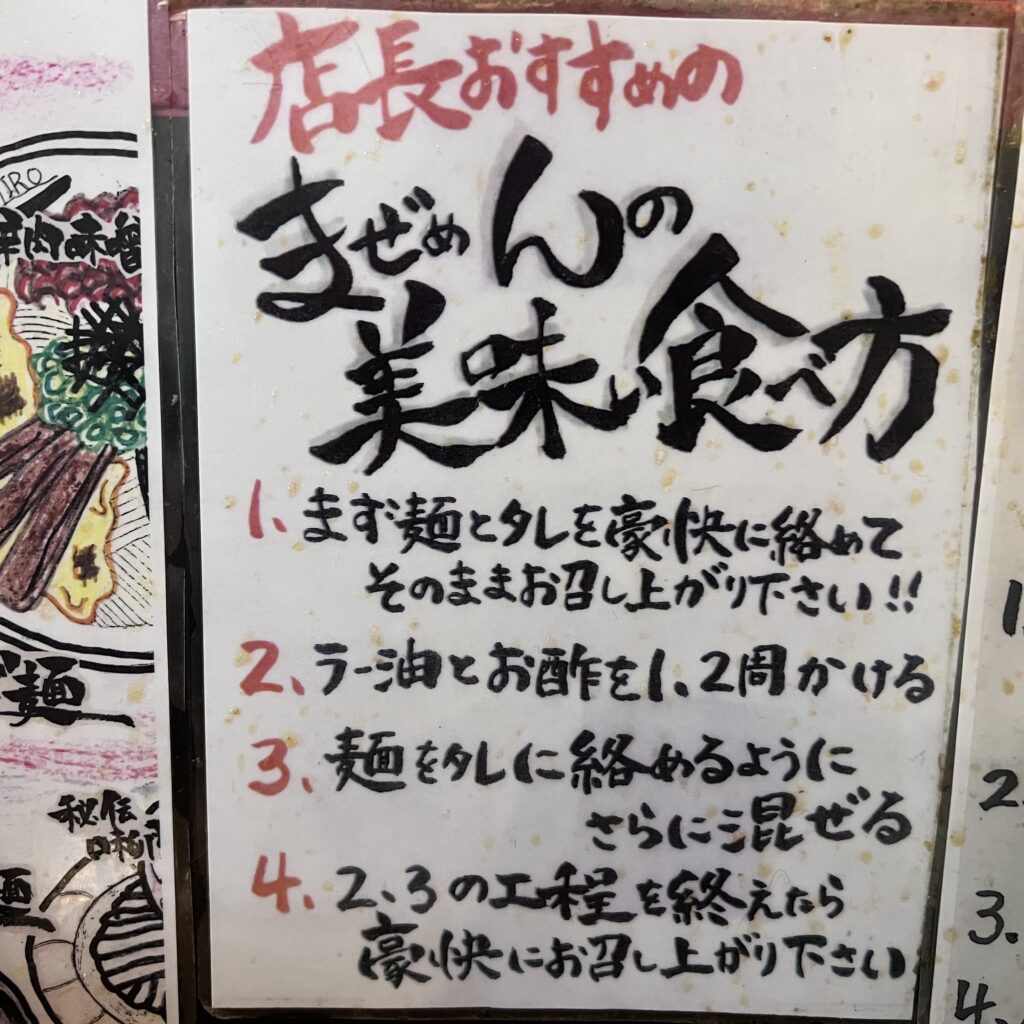 店長おすすめの
まぜめんの
美味い食べ方
1、まず麺とタレを豪快に絡めて
そのままお召し上がり下さい!!
2、ラー油とお酢を1、2周かける
3、麺をタレに絡めるように
さらに混ぜる
4、2、3の工程を終えたら
豪快にお召し上がり下さい
肉味噌
麺
秘伝
1
2.
3.
4.